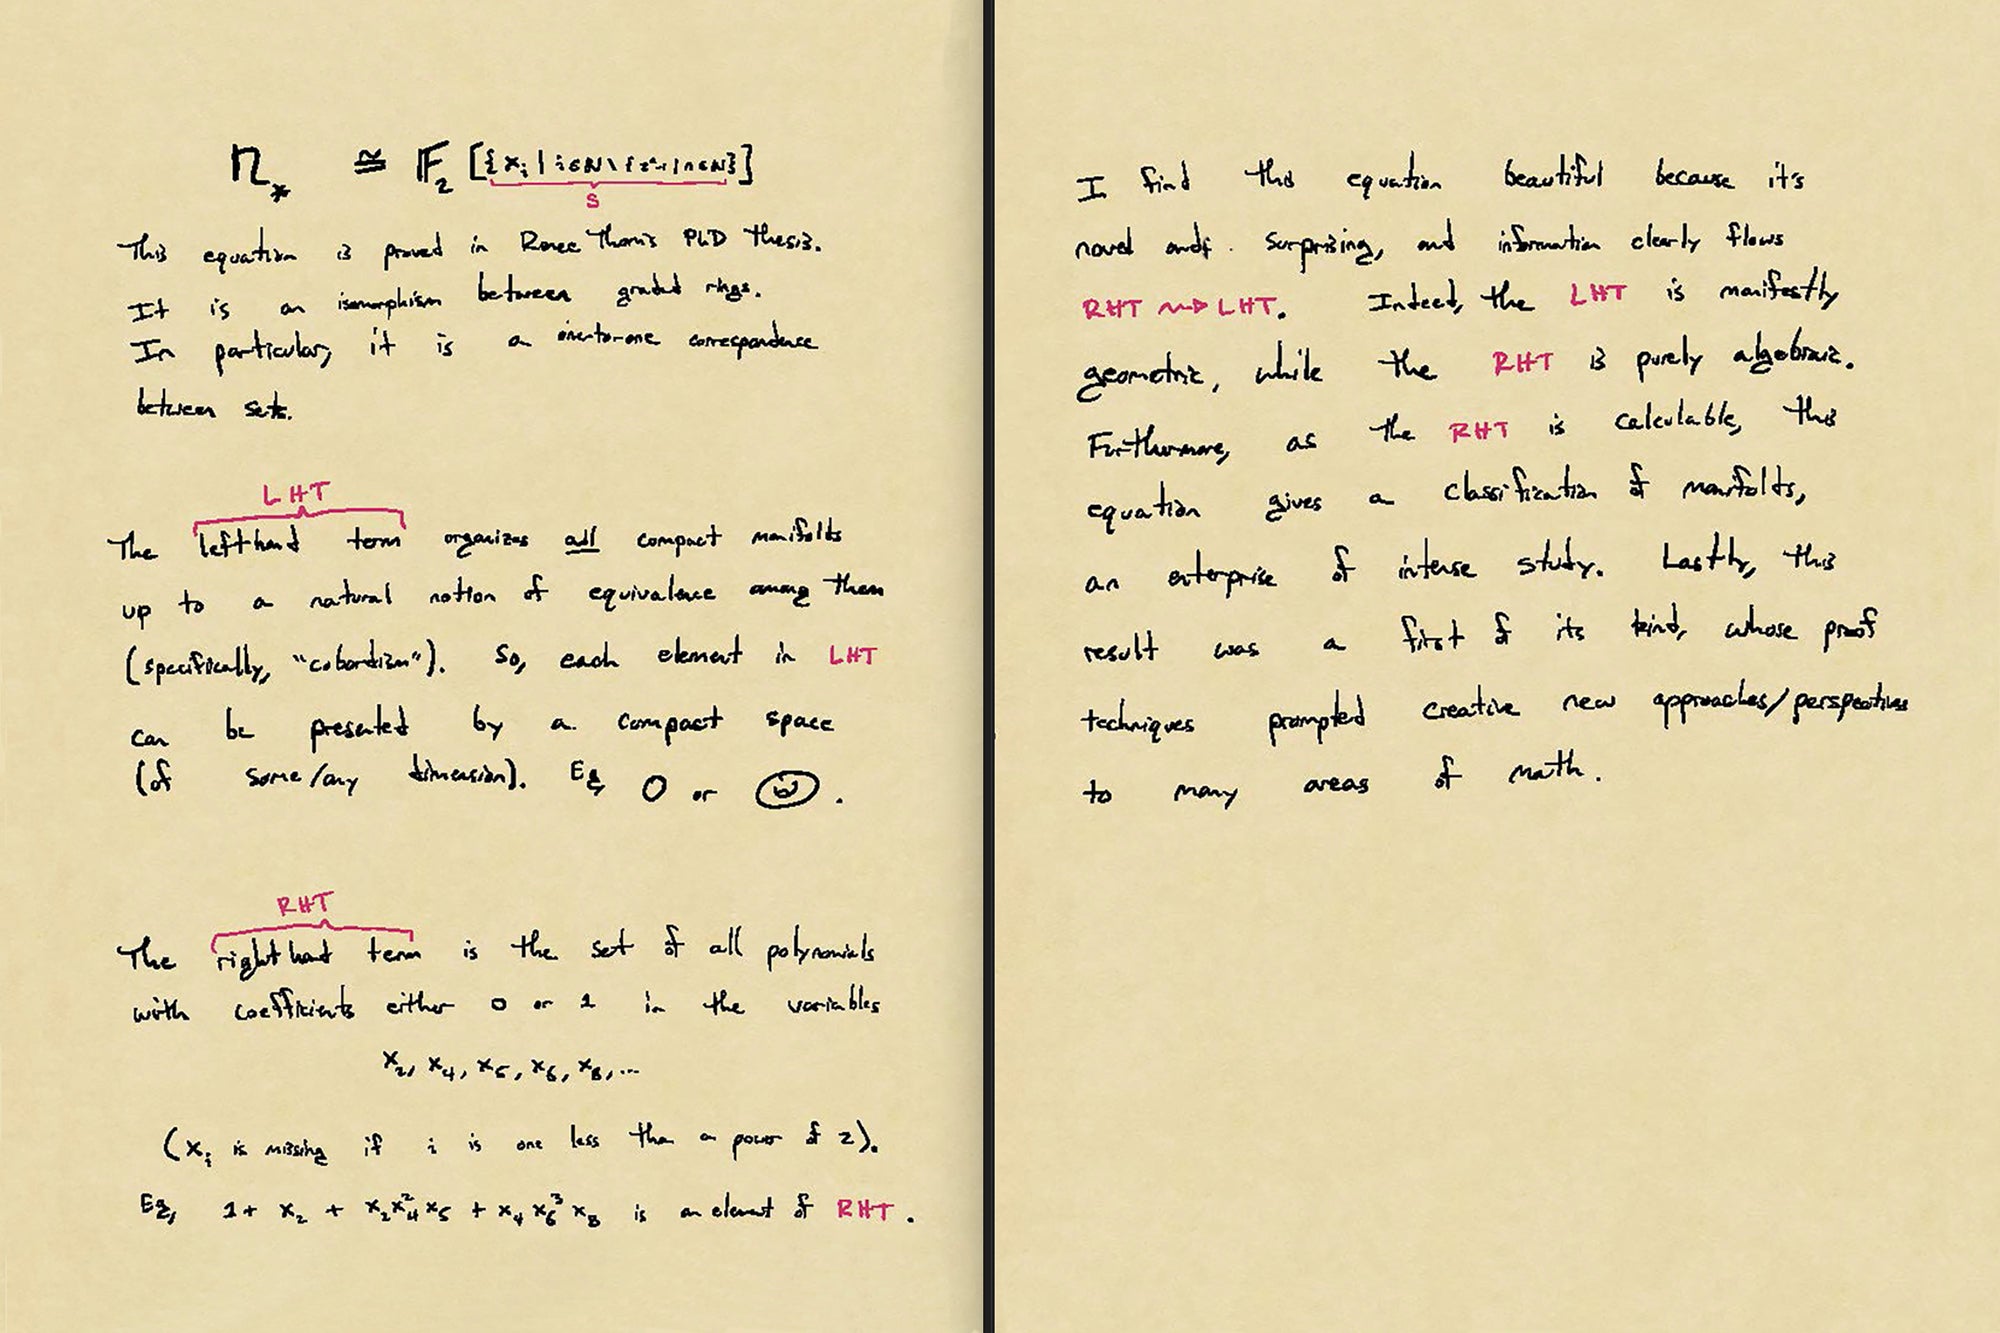 𝔑_* ≅ 𝔽_2 [{x_i | i ∈ ℕ \ {2^n-1 | n ∈ ℕ}]
S
This equation is proved in Renee Thom's PhD thesis.
It is an isomorphism between graded rings.
In particular, it is a one-to-one correspondence
between sets.
LHT
The lefthand term organizes all compact manifolds
up to a natural notion of equivalence among them
(specifically, "cobordism"). So, each element in LHT
can be presented by a compact space
(of some/any dimension). Eg, O or .
RHT
The righthand term is the set of all polynomials
with coefficients either 0 or 1 in the variables
x_2, x_4, x_5, x_6, x_8, ...
(x_i is missing if i is one less than a power of 2).
Eg, 1 + x_2 + x_2 x_4^2 x_5 + x_4 x_6^3 x_8 is an element of RHT.
I find this equation beautiful because it's
novel and surprising, and information clearly flows
RHT ⇝ LHT. Indeed, the LHT is manifestly
geometric, while the RHT is purely algebraic.
Furthermore, as the RHT is calculable, this
equation gives a classification of manifolds,
an enterprise of intense study. Lastly, this
result was a first of its kind, whose proof
techniques prompted creative new approaches/perspectives
to many areas of math.